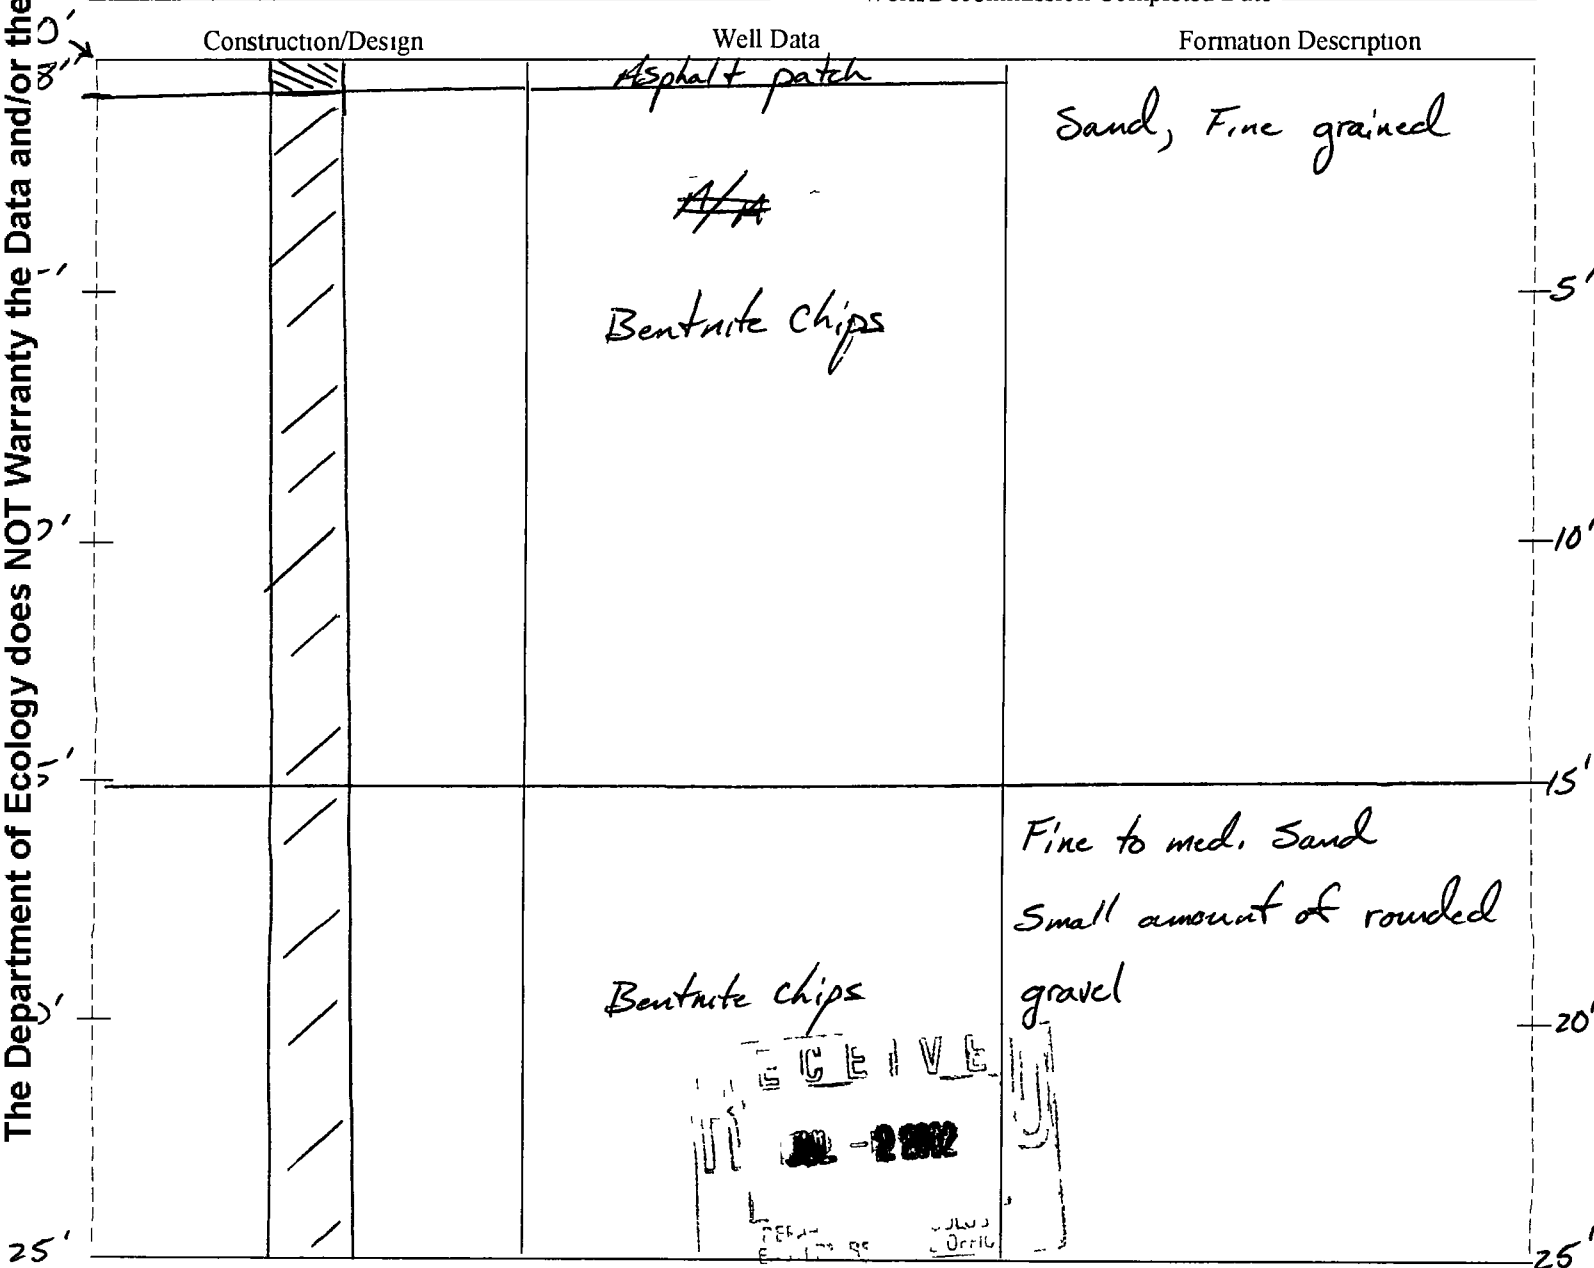 The Department of Ecology does NOT Warranty the Data and/or the
Construction/Design Well Data Formation Description
Asphalt patch
Sand, Fine grained
N/A
5'
Bentnite Chips
10'
15'
Fine to med. Sand
Small amount of rounded
Bentnite chips gravel
20'
JUL - 2 2002
25' 25'